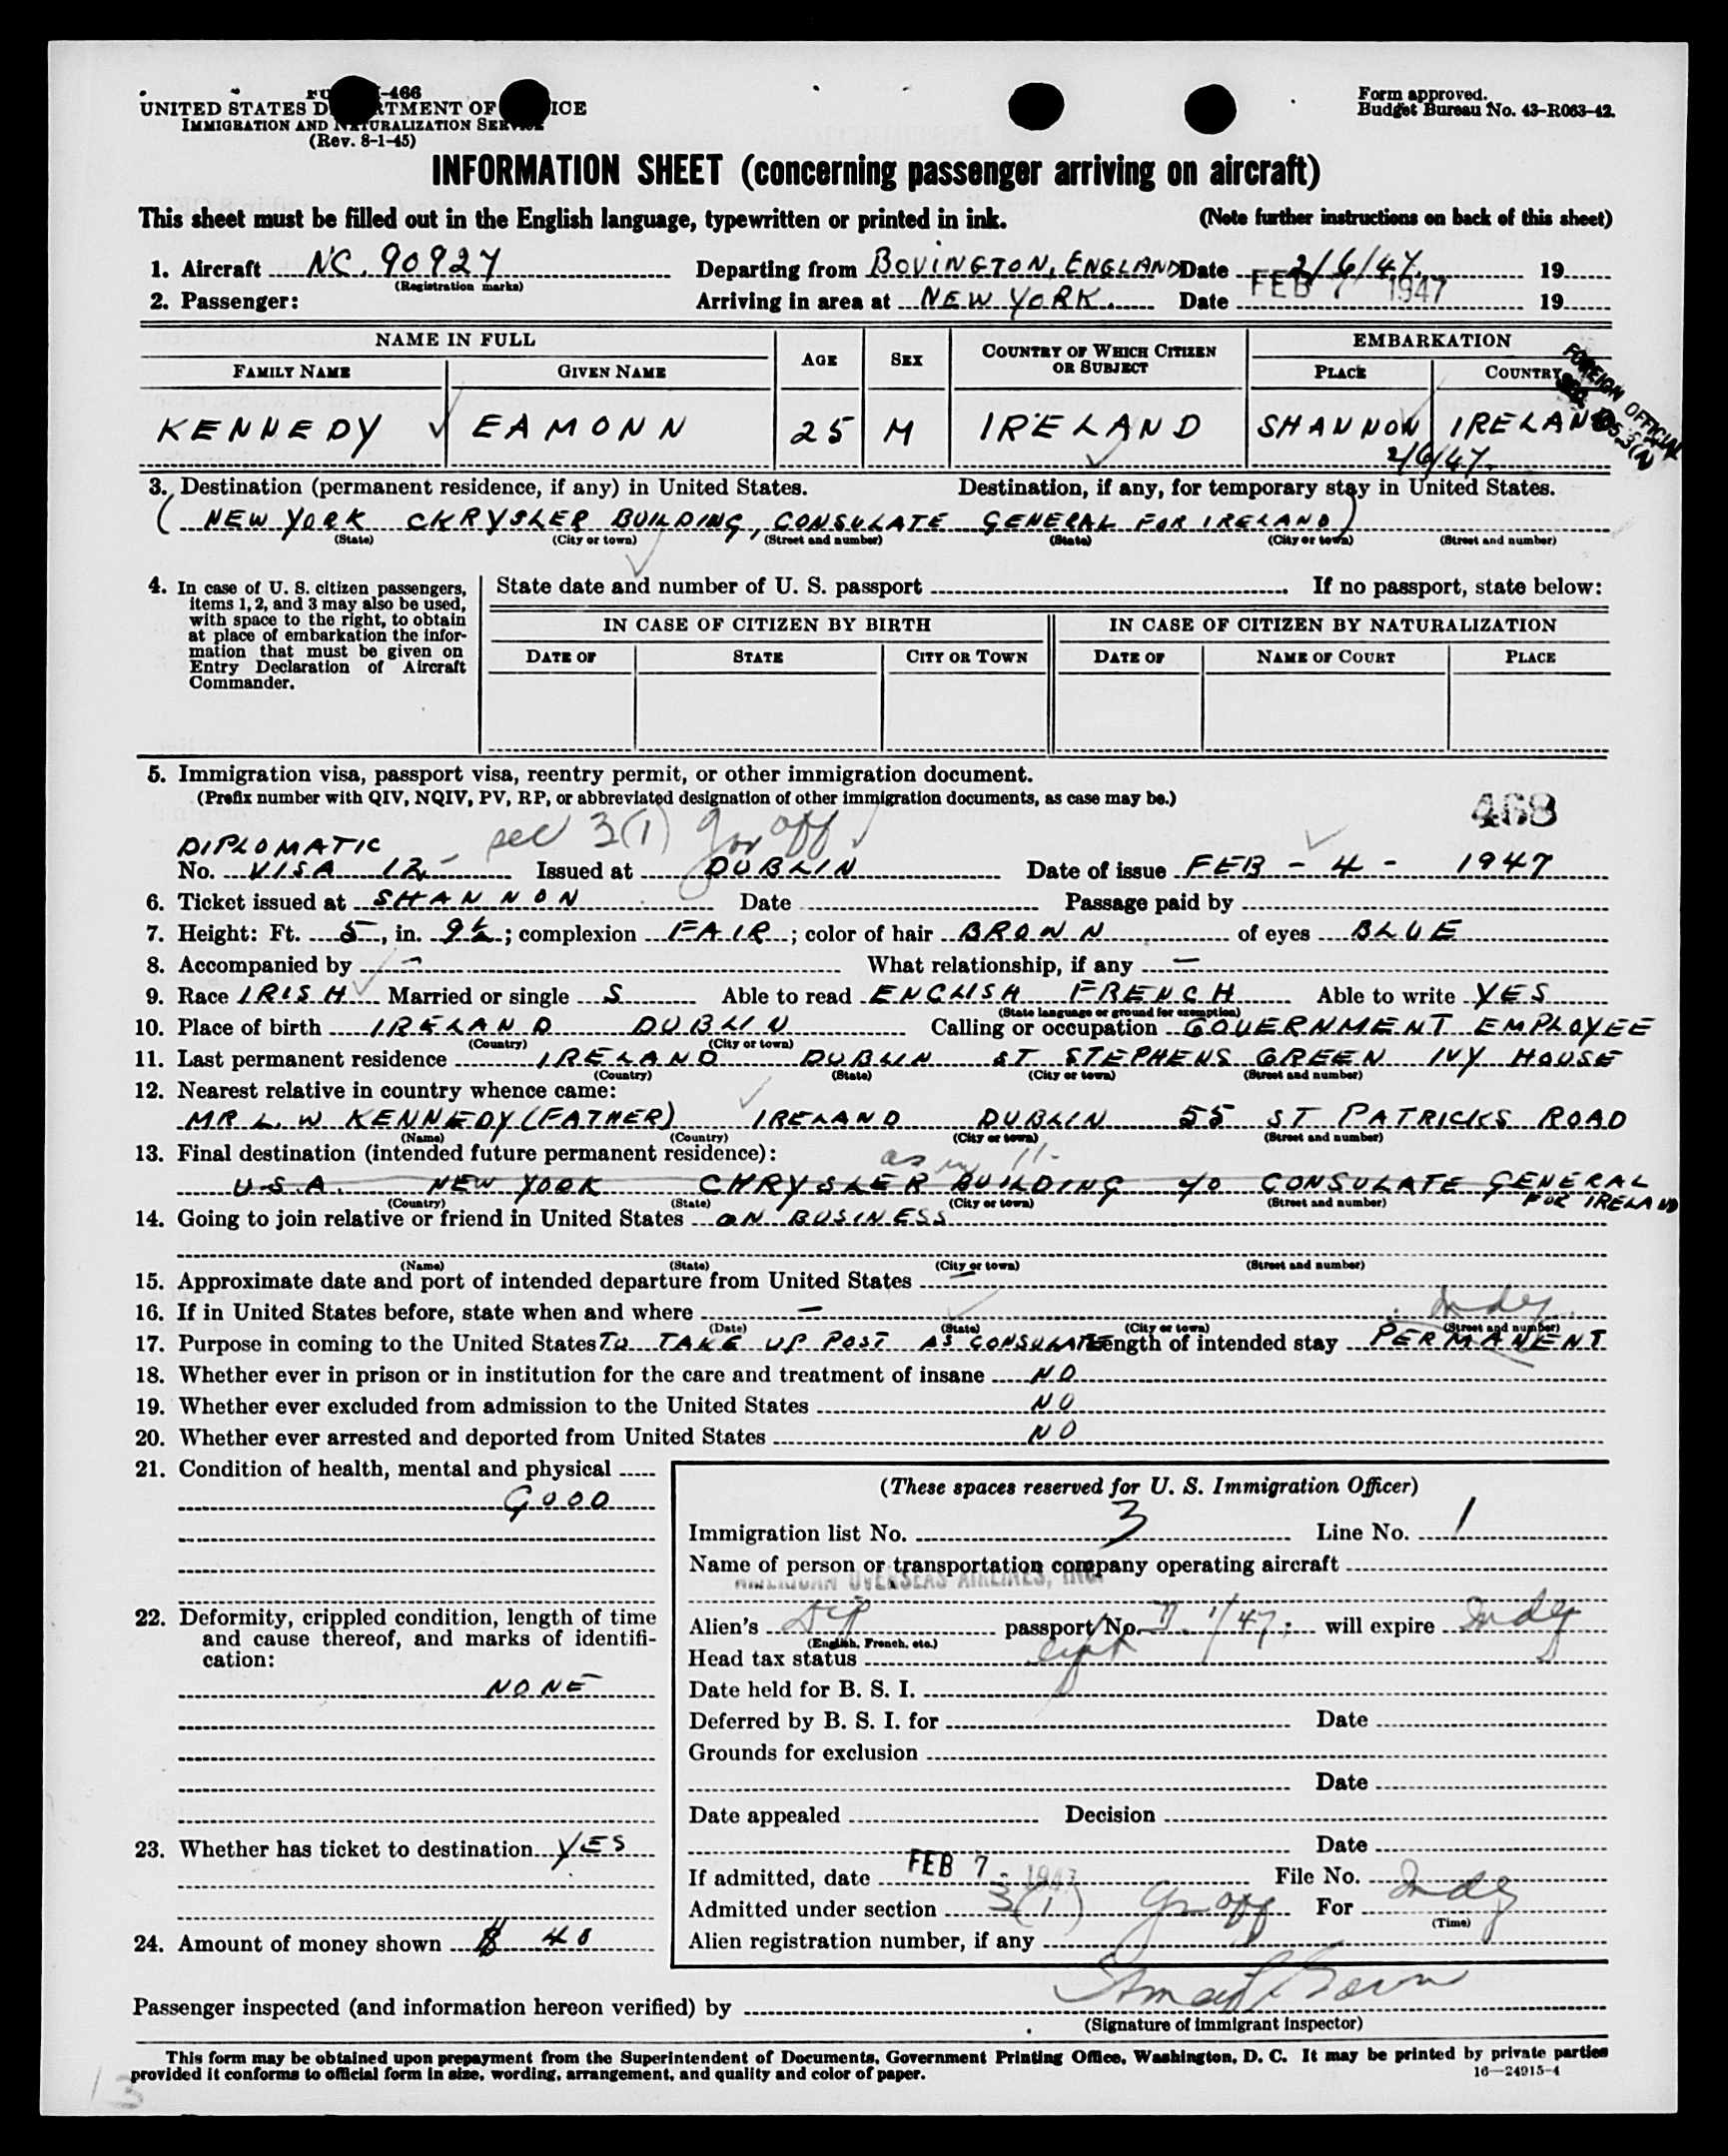 UNITED STATES D RTMENT OF ICE
-466
IMMIGRATION AND NATURALIZATION SERVICE
(Rev. 8-1-45)
Form approved.
Budget Bureau No. 43-R063-42.
INFORMATION SHEET (concerning passenger arriving on aircraft)
This sheet must be filled out in the English language, typewritten or printed in ink. (Note further instructions on back of this sheet)
1. Aircraft NC. 90927 Departing from BOVINGTON, ENGLAND Date 2/6/47. 19
(Registration marks)
2. Passenger: Arriving in area at NEW YORK. Date FEB 7 1947 19
NAME IN FULL AGE SEX COUNTRY OF WHICH CITIZEN OR SUBJECT EMBARKATION
FAMILY NAME GIVEN NAME PLACE COUNTRY
FOREIGN OFFICIAL
KENNEDY EAMONN 25 M IRELAND SHANNON IRELAND
2/6/47.
3. Destination (permanent residence, if any) in United States. Destination, if any, for temporary stay in United States.
( NEW YORK CKRYSLER BUILDING, CONSULATE GENERAL FOR IRELAND)
(State) (City or town) (Street and number) (State) (City or town) (Street and number)
4. In case of U. S. citizen passengers, items 1, 2, and 3 may also be used, with space to the right, to obtain at place of embarkation the information that must be given on Entry Declaration of Aircraft Commander.
State date and number of U. S. passport . If no passport, state below:
IN CASE OF CITIZEN BY BIRTH IN CASE OF CITIZEN BY NATURALIZATION
DATE OF STATE CITY OR TOWN DATE OF NAME OF COURT PLACE
5. Immigration visa, passport visa, reentry permit, or other immigration document.
(Prefix number with QIV, NQIV, PV, RP, or abbreviated designation of other immigration documents, as case may be.)
468
sec 3(1) Gov off
DIPLOMATIC
No. VISA 12 - Issued at DUBLIN Date of issue FEB - 4 - 1947
6. Ticket issued at SHANNON Date Passage paid by
7. Height: Ft. 5, in. 9½; complexion FAIR; color of hair BROWN of eyes BLUE
8. Accompanied by - What relationship, if any -
9. Race IRISH Married or single S Able to read ENGLISH FRENCH Able to write YES
(State language or ground for exemption)
10. Place of birth IRELAND DUBLIN Calling or occupation GOVERNMENT EMPLOYEE
(Country) (City or town)
11. Last permanent residence IRELAND DUBLIN ST STEPHENS GREEN IVY HOUSE
(Country) (State) (City or town) (Street and number)
12. Nearest relative in country whence came:
MR L. W KENNEDY (FATHER) IRELAND DUBLIN 55 ST PATRICKS ROAD
(Name) (Country) (City or town) (Street and number)
13. Final destination (intended future permanent residence): as in 11-
U.S.A. NEW YORK CHRYSLER BUILDING c/o CONSULATE GENERAL
FOR IRELAND
(Country) (State) (City or town) (Street and number)
14. Going to join relative or friend in United States ON BUSINESS
(Name) (State) (City or town) (Street and number)
15. Approximate date and port of intended departure from United States -
16. If in United States before, state when and where - Indef.
(Date) (State) (City or town) (Street and number)
17. Purpose in coming to the United States TO TAKE UP POST AS CONSULATE Length of intended stay PERMANENT
18. Whether ever in prison or in institution for the care and treatment of insane NO
19. Whether ever excluded from admission to the United States NO
20. Whether ever arrested and deported from United States NO
21. Condition of health, mental and physical
GOOD
22. Deformity, crippled condition, length of time and cause thereof, and marks of identification:
NONE
23. Whether has ticket to destination YES
24. Amount of money shown $ 40
(These spaces reserved for U. S. Immigration Officer)
Immigration list No. 3 Line No. 1
Name of person or transportation company operating aircraft
AMERICAN OVERSEAS AIRLINES, INC.
Alien's Dip passport No. 1/47; will expire Indef
(English, French, etc.)
Head tax status
Date held for B. S. I.
Deferred by B. S. I. for Date
Grounds for exclusion
Date
Date appealed Decision
Date
If admitted, date FEB 7 - 1947 File No.
Admitted under section 3(1) Gov off For Indef
(Time)
Alien registration number, if any
Passenger inspected (and information hereon verified) by
(Signature of immigrant inspector)
This form may be obtained upon prepayment from the Superintendent of Documents, Government Printing Office, Washington, D. C. It may be printed by private parties
provided it conforms to official form in size, wording, arrangement, and quality and color of paper. 16—24915-4
13